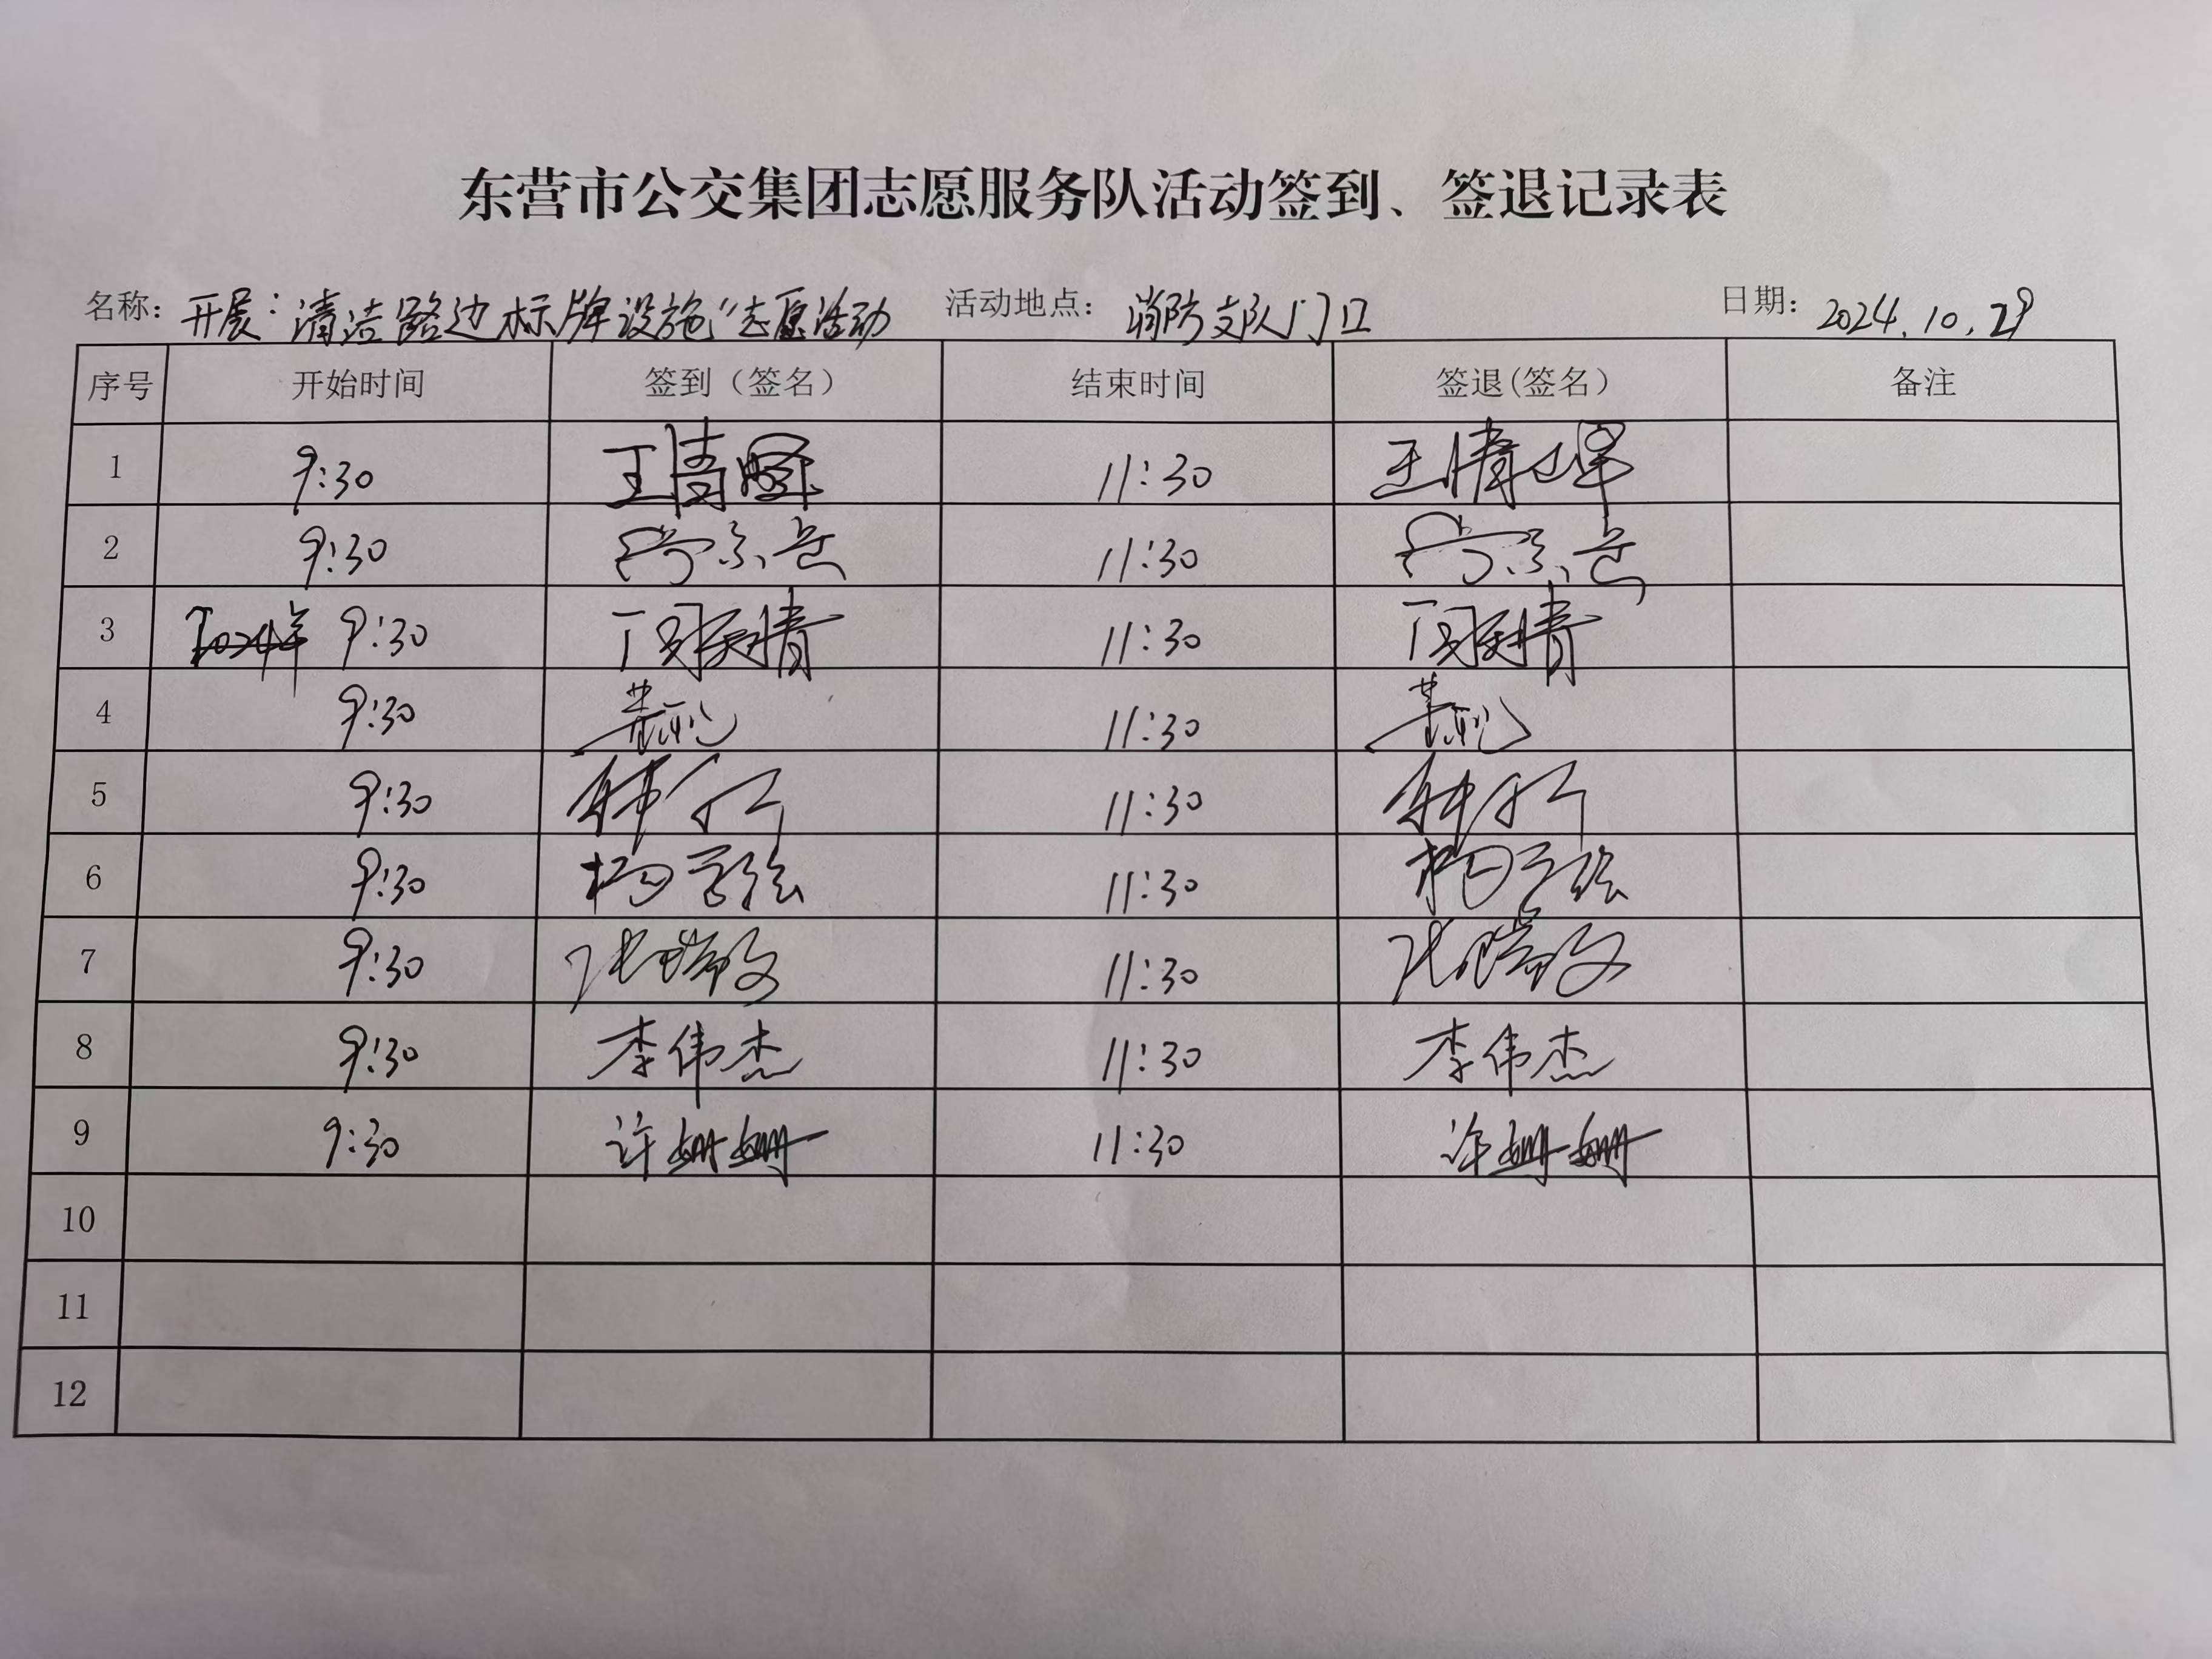 东营市公交集团志愿服务队活动签到、签退记录表
名称：开展“清洁路边标牌设施”志愿活动 活动地点：消防支队门口 日期：2024.10.29
序号 开始时间 签到（签名） 结束时间 签退(签名） 备注
1 9:30 11:30
2 9:30 11:30
3 9:30 11:30
4 9:30 11:30
5 9:30 11:30
6 9:30 11:30
7 9:30 张瑞改 11:30 张瑞改
8 9:30 李伟杰 11:30 李伟杰
9 9:30 许姗姗 11:30 许姗姗
10
11
12